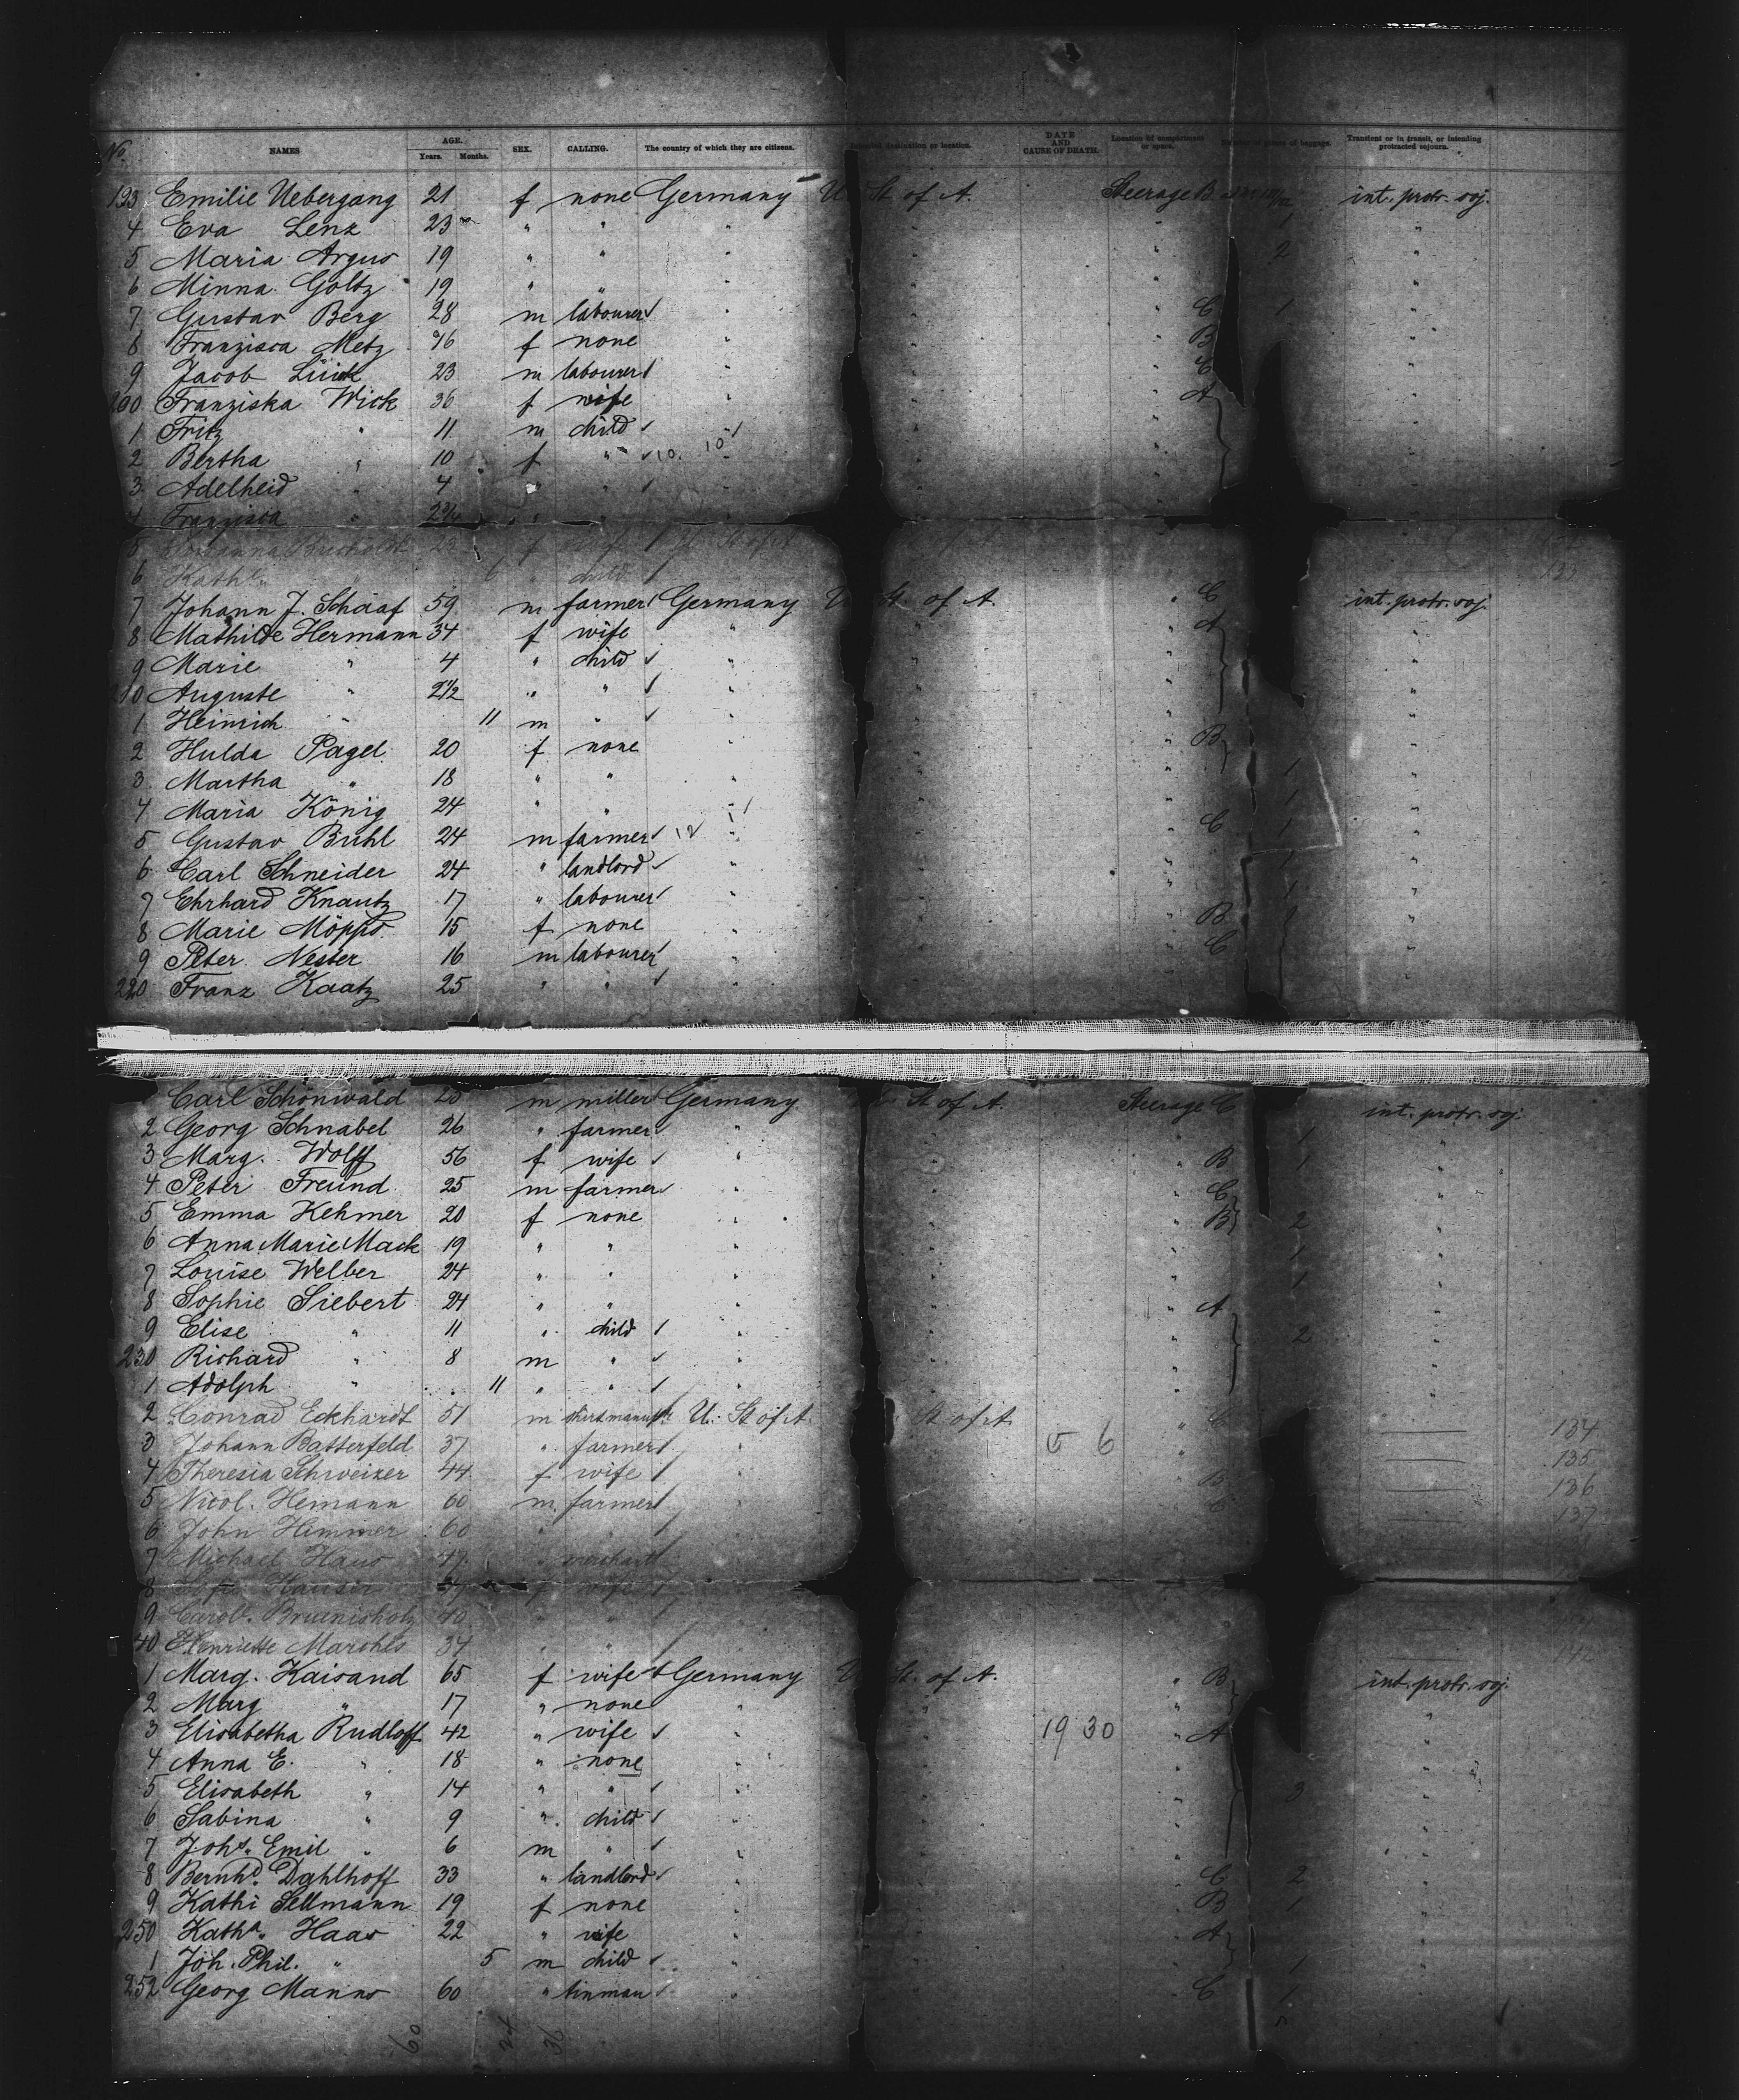 No. NAMES AGE. Years. Months. SEX. CALLING. The country of which they are citizens. destination or location. DATE AND CAUSE OF DEATH. Location of compartment or space. of pieces of baggage. Transient or in transit, or intending protracted sojourn.
193 Emilie Uebergang 21 f none Germany U. St. of A. Steerage B int. protr. soj.
4 Eva Lenz 23 " " " " " 1 "
5 Maria Argus 19 " " " " " 2 "
6 Minna Goltz 19 " " " " " "
7 Gustav Berg 28 m labourer " " " C 1 "
8 Franzisca Metz 16 f none " " " B "
9 Jacob Lück 23 m labourer " " " C "
200 Franziska Wick 36 f wife " " " A "
1 Fritz " 11 m child " " " "
2 Bertha " 10 f " 10. 10 " " " "
3 Adelheid " 4 " " " " " "
4 Franzisca " 2 3/4 " " " " "
5 f wife U. St. of A.
6 Kath. " 6 " child 133
7 Johann J. Schaaf 59 m farmer Germany U. St. of A. " C int. protr. soj.
8 Mathilde Hermann 34 f wife " " " A "
9 Marie " 4 " child " " " "
210 Auguste " 2 1/2 " " " " " "
1 Heinrich " 11 m " " " " "
2 Hulda Pagel 20 f none " " " B "
3 Martha " 18 " " " " " 1 "
4 Maria König 24 " " " " " 1 "
5 Gustav Bühl 24 m farmer " " " C 1 "
6 Carl Schneider 24 " landlord " " " 1 "
7 Ehrhard Knautz 17 " labourer " " " 1 "
8 Marie Möpps 15 f none " " " B 1 "
9 Peter Nester 16 m labourer " " " C "
220 Franz Kaatz 25 " " " " " "
Carl Schönwald 25 m miller Germany St. of A. Steerage C int. protr. soj.
2 Georg Schnabel 26 " farmer " " " 1 "
3 Marg. Wolff 56 f wife " " " B 1 "
4 Peter Freund 25 m farmer " " " C "
5 Emma Kehmer 20 f none " " " B 2 "
6 Anna Marie Mack 19 " " " " " 1 "
7 Louise Welber 24 " " " " " 1 "
8 Sophie Siebert 24 " " " " " A "
9 Elise " 11 " child " " " 2 "
230 Richard " 8 m " " " " "
1 Adolph " 11 " " " " " "
2 Conrad Eckhardt 51 m U. St. of A. St. of A. " C 134
3 Johann Batterfeld 37 " farmer " " 5 6 " 135
4 Theresia Schweizer 44 f wife " " " B 136
5 Nicol. Hemann 60 m farmer " " " C 137
6 John Himmer 60 " "
7 Michael Haus 49 " merchant
8 Hauser f wife
9 Carol. 40 " "
40 Henriette Marohls 34 " " 142
1 Marg. Kaisand 65 f wife Germany U. St. of A. " B int. protr. soj.
2 Marg " 17 " none " " " "
3 Elisabetha Rudloff 42 " wife " " 19 30 " A "
4 Anna E. " 18 " none " " " "
5 Elisabeth " 14 " " " " " 3 "
6 Sabina " 9 " child " " " "
7 Johs. Emil " 6 m " " " " "
8 Bernhd. Dahlhoff 33 " landlord " " " C 2 "
9 Kathi Sellmann 19 f none " " " B 1 "
250 Katha. Haas 22 " wife " " " A "
1 Joh. Phil. " 5 m child " " " 1 "
252 Georg Manns 60 " tinman " " " C 1 "
60 24 36